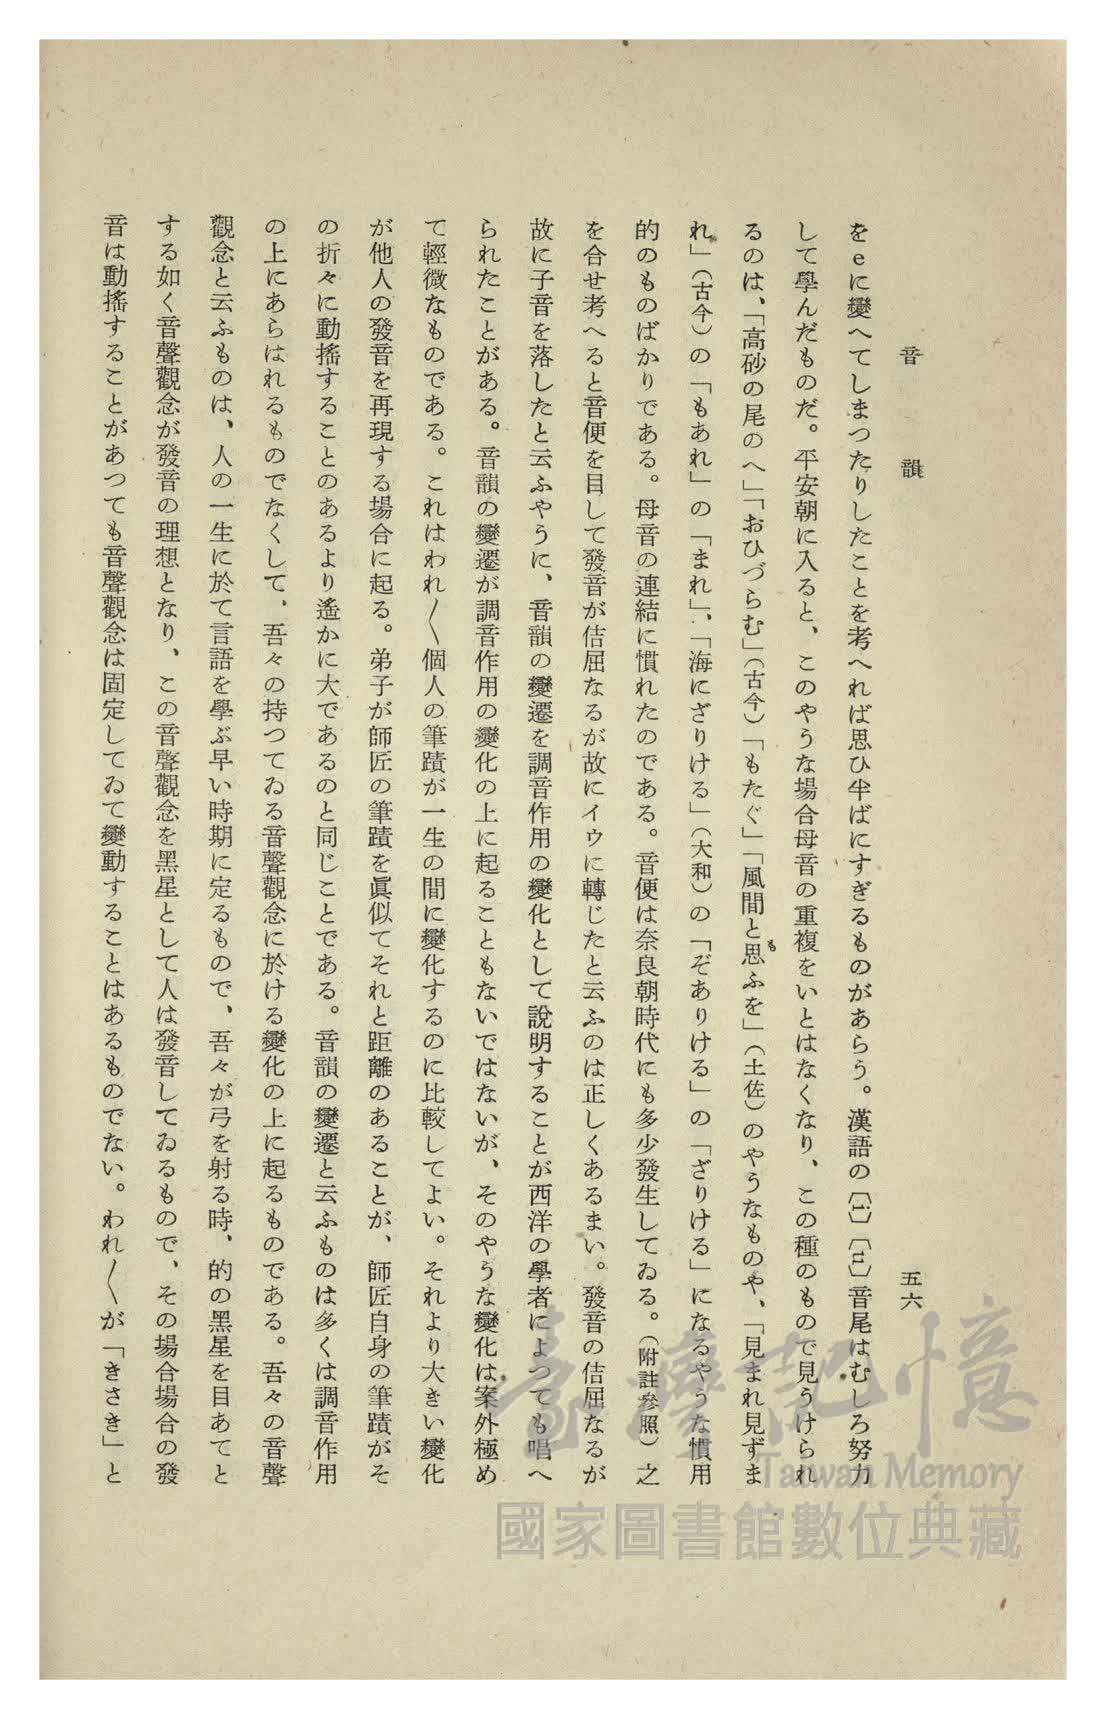 音韻
五六
をeに變へてしまつたりしたことを考へれば思ひ半ばにすぎるものがあらう。漢語の〔i〕〔u〕音尾はむしろ努力
して學んだものだ。平安朝に入ると、このやうな場合母音の重複をいとはなくなり、この種のもので見うけられ
るのは、「高砂の尾のへ」「おひづらむ」(古今)「もたぐ」「風間と思ふを」(土佐)のやうなものや、「見まれ見ずま
も
れ」(古今)の「もあれ」の「まれ」、「海にざりける」(大和)の「ぞありける」の「ざりける」になるやうな慣用
的のものばかりである。母音の連結に慣れたのである。音便は奈良朝時代にも多少發生してゐる。(附註參照)之
を合せ考へると音便を目して發音が佶屈なるが故にイウに轉じたと云ふのは正しくあるまい。發音の佶屈なるが
故に子音を落したと云ふやうに、音韻の變遷を調音作用の變化として說明することが西洋の學者によつても唱へ
られたことがある。音韻の變遷が調音作用の變化の上に起ることもないではないが、そのやうな變化は案外極め
て輕微なものである。これはわれ〳〵個人の筆蹟が一生の間に變化するのに比較してよい。それより大きい變化
が他人の發音を再現する場合に起る。弟子が師匠の筆蹟を眞似てそれと距離のあることが、師匠自身の筆蹟がそ
の折々に動搖することのあるより遙かに大であるのと同じことである。音韻の變遷と云ふものは多くは調音作用
の上にあらはれるものでなくして、吾々の持つてゐる音聲觀念に於ける變化の上に起るものである。吾々の音聲
觀念と云ふものは、人の一生に於て言語を學ぶ早い時期に定るもので、吾々が弓を射る時、的の黑星を目あてと
する如く音聲觀念が發音の理想となり、この音聲觀念を黑星として人は發音してゐるもので、その場合場合の發
音は動搖することがあつても音聲觀念は固定してゐて變動することはあるものでない。われ〳〵が「きさき」と
臺灣記憶
Taiwan Memory
國家圖書館數位典藏